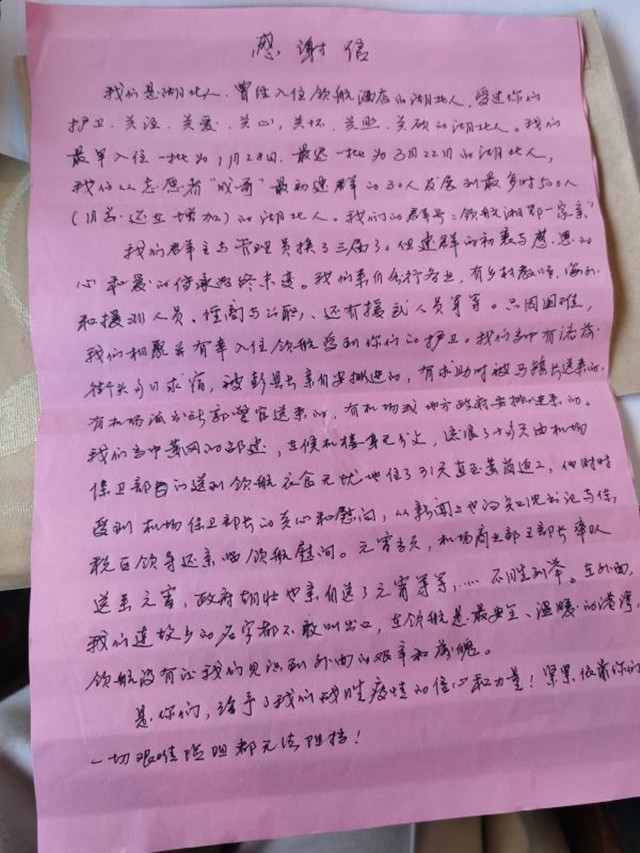 感谢信
我们是湖北人,曾经入住领航酒店的湖北人,受过你们
护卫、关注、关爱、关心,关怀、关照、关顾的湖北人。我们
最早入住一批为1月28日,最迟一批为3月22日的湖北人,
我们从志愿者“成哥”最初建群的30人发展到最多时500人
(目前还在增加)的湖北人。我们的群号:领航湘鄂一家亲
我们群主与管理员换了三届了。但建群的初衷与感恩的
心和爱的传承始终未变。我们来自各行各业,有乡村教师,海外
和援测人员、经商与公职、还有援武人员等等。只因困难,
我们相聚并有幸入住领航受到你们的护卫。我们当中有流落
街头多日求宿,被彭县长亲自安排进的,有求助时被马镇长送来的,
有机场派出所郭警官送来的,有机场或地方政府安排进来的。
我们当中黄冈的邵建,在候机楼身无分文,流浪了十多天由机场
保卫部门送到领航衣食无忧地住了31天直至黄岗返工,他时时
受到机场保卫部长的关心和慰问,从新闻上也的知沈书记与保
税区领导还亲临领航慰问。元宵当天,机场商业部王部长率队
送来元宵,政府胡壮也亲自送了元宵等等,……不胜列举。在外面,
我们连故乡的名字都不敢叫出口,在领航是最安全、温暖的港湾,
领航没有让我们见识到外面的艰辛和落魄。
是你们,给予了我们战胜疫情的信心和力量!紧紧依靠你们
一切艰难险阻都无法阻挡!